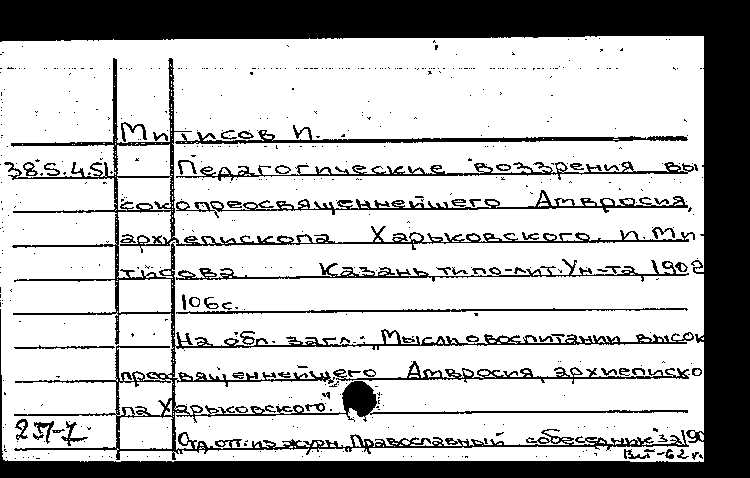 Митисов И.
38.5.4.51. Педагогические воззрения вы-
сокопреосвященнейшего Амвросия,
архиепископа Харьковского. И. Ми-
тисова. Казань, типо-лит. Ун-та, 1908
106 с.
На обл. загл.: "Мысли о воспитании высок
преосвященнейшего Амвросия, архиеписко
па Харьковского".
Отд. отт. из журн. "Православный собеседник" за 190